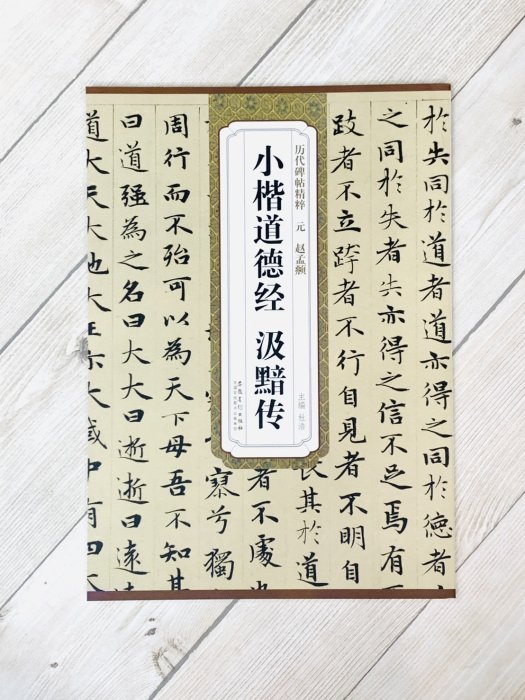 历代碑帖精粹 元 赵孟頫
小楷道德经 汲黯传
主编 杜浩
於失同於道者道亦得之同於德者
之同於失者失亦得之信不足焉有
跂者不立跨者不行自見者不明自
長其於道
者不處也
寥兮獨
周行而不殆可以為天下母吾不知其
曰道強為之名曰大大曰逝逝曰遠
道大天大地大王亦大域中有四大